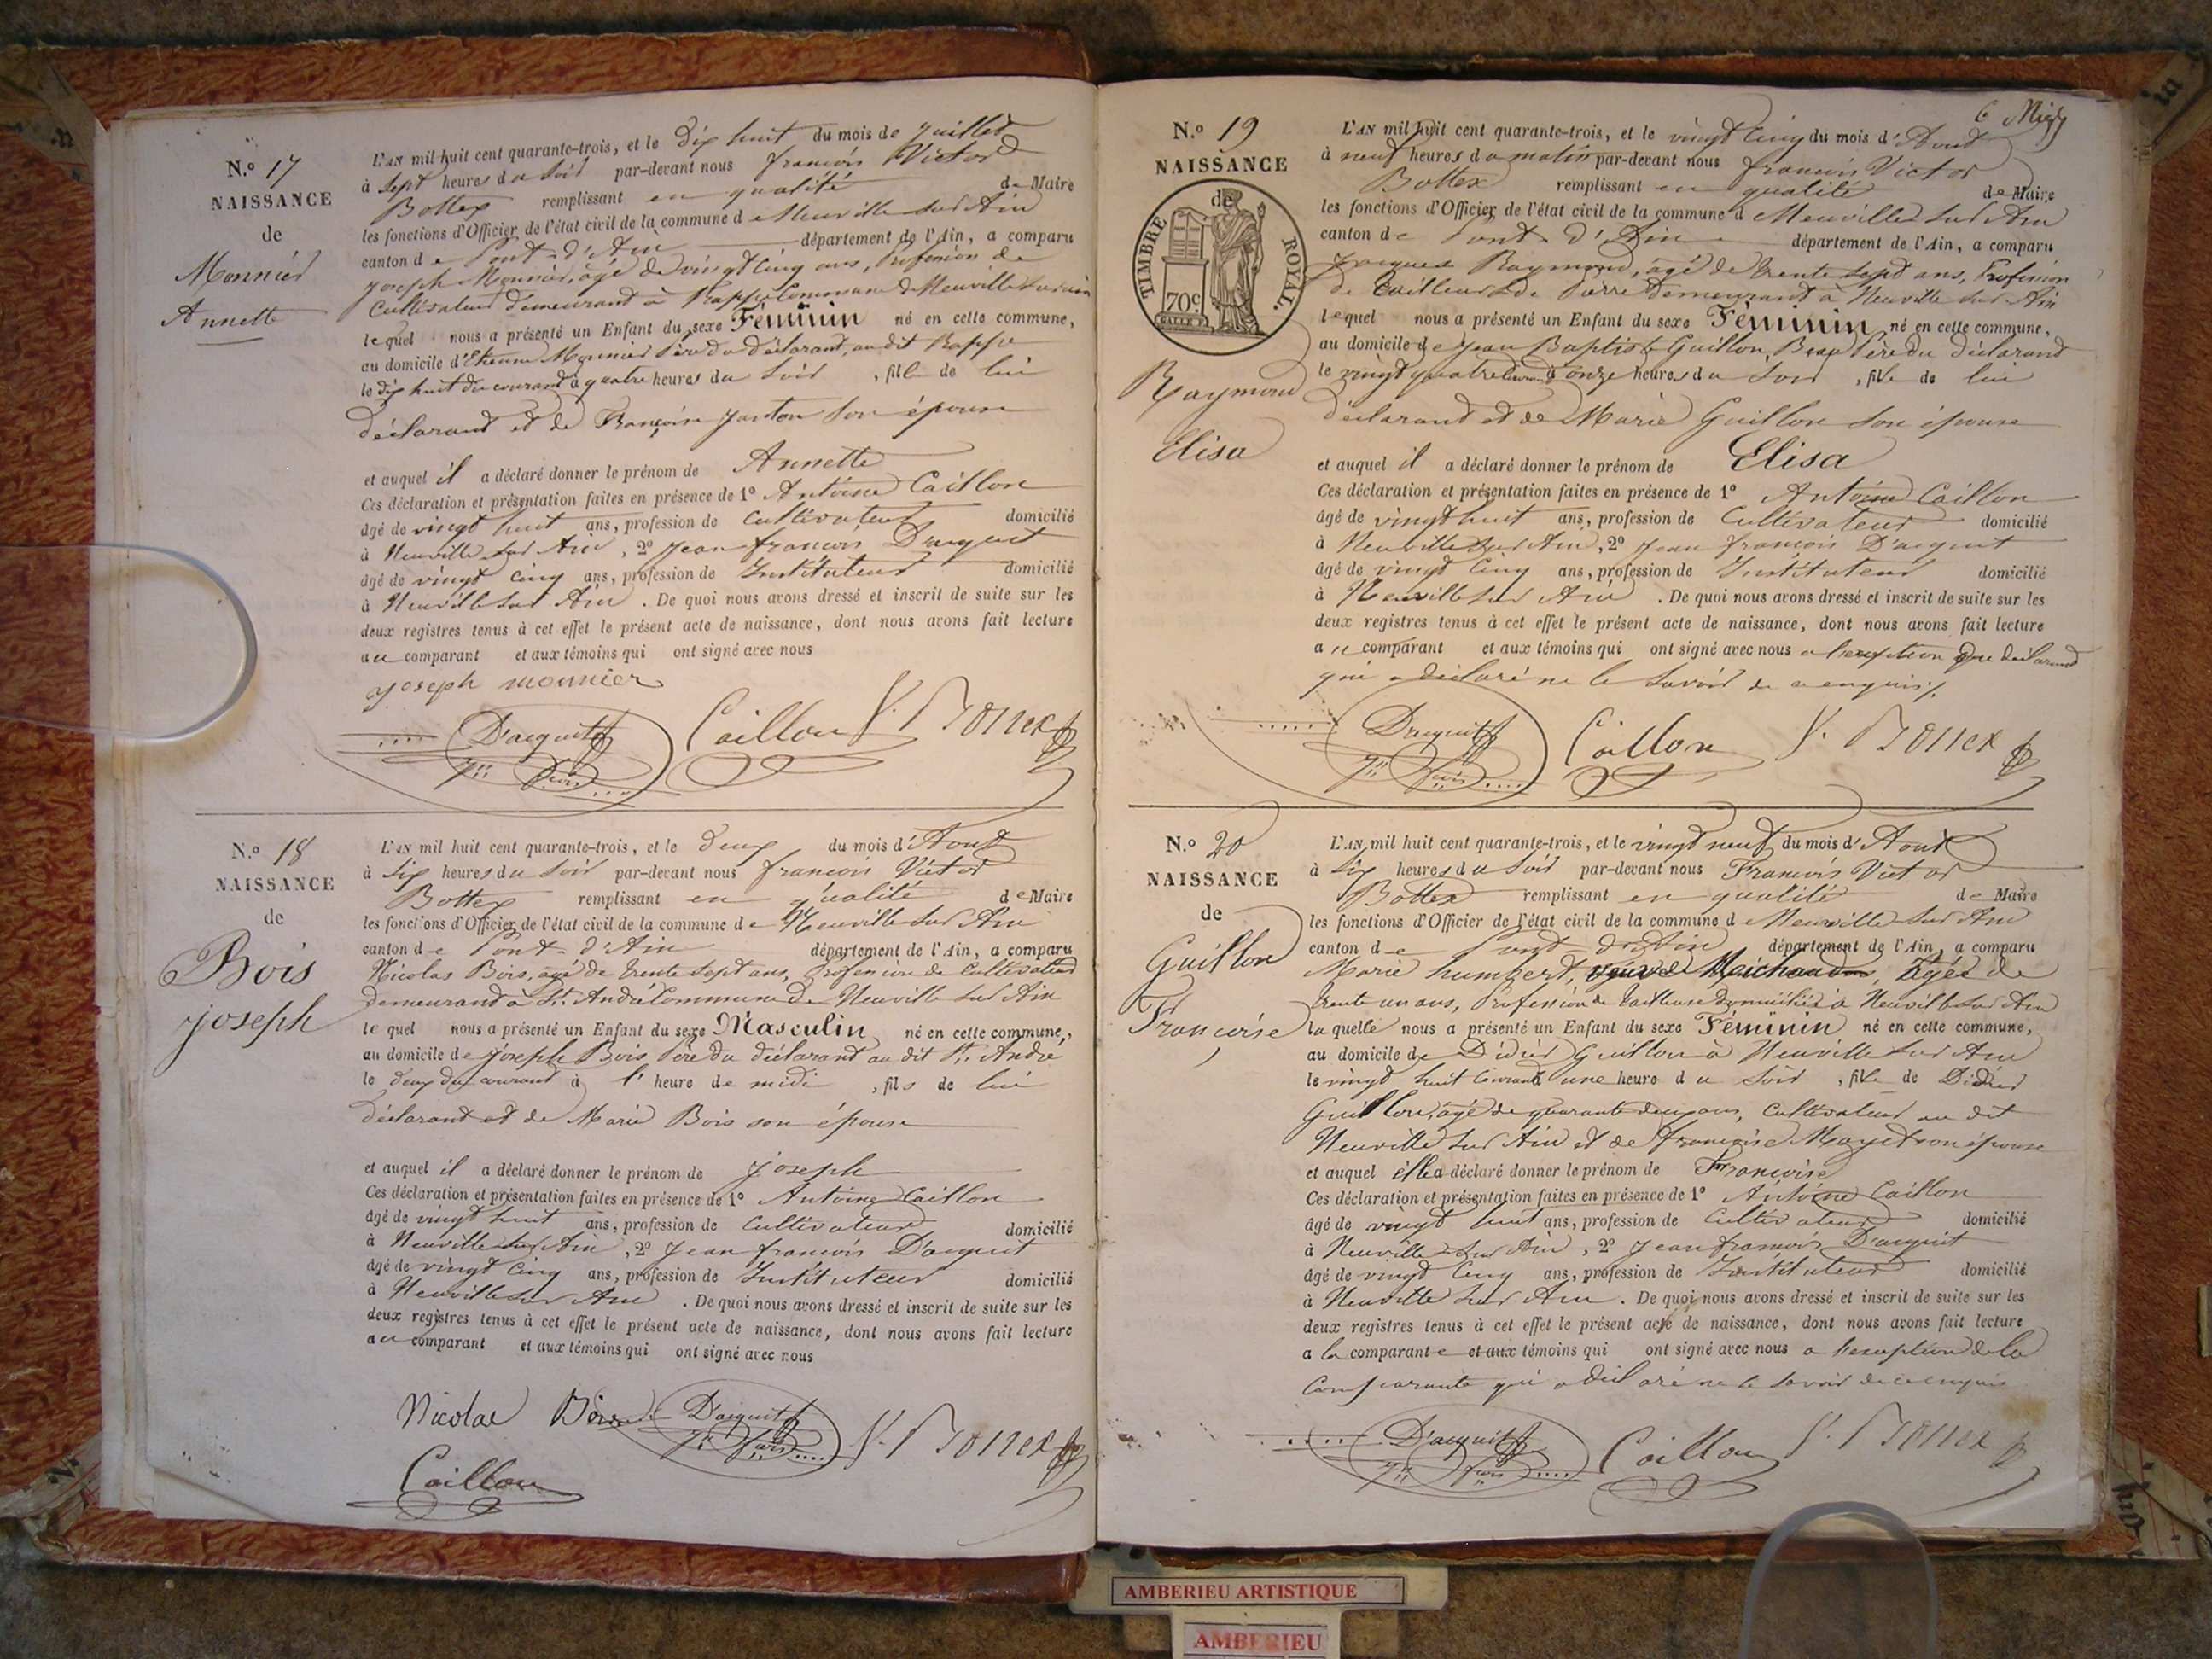 N.º 17
NAISSANCE
de
Monnier
Annette
L'AN mil huit cent quarante-trois, et le dix huit du mois de Juillet
à Sept heures du Soir par-devant nous françois Victor
Bottex remplissant en qualité de Maire
les fonctions d'Officier de l'état civil de la commune de Neuville sur Ain
canton de Pont-d'Ain département de l'Ain, a comparu
joseph Monnier, âgé de vingt cinq ans, Profession de
Cultivateur demeurant à Rappe Commune de Neuville sur ain
lequel nous a présenté un Enfant du sexe Féminin né en cette commune,
au domicile d'Etienne Monnier Père du déclarant, au dit Rappe
le dix huit du courant à quatre heures du Soir, fille de lui
déclarant et de Françoise Janton son épouse
et auquel il a déclaré donner le prénom de Annette
Ces déclaration et présentation faites en présence de 1º Antoine Caillon
âgé de vingt huit ans, profession de Cultivateur domicilié
à Neuville sur Ain, 2º Jean françois D'acquit
âgé de vingt cinq ans, profession de Instituteur domicilié
à Neuville sur Ain. De quoi nous avons dressé et inscrit de suite sur les
deux registres tenus à cet effet le présent acte de naissance, dont nous avons fait lecture
au comparant et aux témoins qui ont signé avec nous
joseph monnier
D'acquit Caillon V. Bottex
Jn fois
N.º 18
NAISSANCE
de
Bois
joseph
L'AN mil huit cent quarante-trois, et le deux du mois d'Aout
à Six heures du Soir par-devant nous françois Victor
Bottex remplissant en qualité de Maire
les fonctions d'Officier de l'état civil de la commune de Neuville sur Ain
canton de Pont-d'Ain département de l'Ain, a comparu
Nicolas Bois, âgé de trente sept ans, Profession de Cultivateur
demeurant à St. André Commune de Neuville sur Ain
lequel nous a présenté un Enfant du sexe Masculin né en cette commune,
au domicile de joseph Bois Père du déclarant au dit St. André
le deux du courant à l'heure de midi, fils de lui
déclarant et de Marie Bois son épouse
et auquel il a déclaré donner le prénom de joseph
Ces déclaration et présentation faites en présence de 1º Antoine Caillon
âgé de vingt huit ans, profession de Cultivateur domicilié
à Neuville sur Ain, 2º Jean françois D'acquit
âgé de vingt cinq ans, profession de Instituteur domicilié
à Neuville sur Ain. De quoi nous avons dressé et inscrit de suite sur les
deux registres tenus à cet effet le présent acte de naissance, dont nous avons fait lecture
au comparant et aux témoins qui ont signé avec nous
Nicolas Bois D'acquit V. Bottex
Jn fois
Caillon
6
N.º 19
NAISSANCE
de
TIMBRE ROYAL.
70c
Raymond
Elisa
L'AN mil huit cent quarante-trois, et le vingt cinq du mois d'Aout
à neuf heures du matin par-devant nous françois Victor
Bottex remplissant en qualité de Maire
les fonctions d'Officier de l'état civil de la commune de Neuville sur Ain
canton de Pont d'Ain département de l'Ain, a comparu
Jacques Raymond, âgé de trente sept ans, Profession
de Tailleur de Pierre demeurant à Neuville sur Ain
lequel nous a présenté un Enfant du sexe Féminin né en cette commune,
au domicile de Jean Baptiste Guillon, Beau Père du déclarant
le vingt quatre Courant à onze heures du Soir, fille de lui
déclarant et de Marie Guillon son épouse
et auquel il a déclaré donner le prénom de Elisa
Ces déclaration et présentation faites en présence de 1º Antoine Caillon
âgé de vingt huit ans, profession de Cultivateur domicilié
à Neuville sur Ain, 2º Jean françois D'acquit
âgé de vingt cinq ans, profession de Instituteur domicilié
à Neuville sur Ain. De quoi nous avons dressé et inscrit de suite sur les
deux registres tenus à cet effet le présent acte de naissance, dont nous avons fait lecture
au comparant et aux témoins qui ont signé avec nous a l'exception du déclarant
qui a déclaré ne le Savoir de ce enquis
D'acquit Caillon V. Bottex
Jn fois
N.º 20
NAISSANCE
de
Guillon
Françoise
L'AN mil huit cent quarante-trois, et le vingt neuf du mois d'Aout
à Six heures du Soir par-devant nous François Victor
Bottex remplissant en qualité de Maire
les fonctions d'Officier de l'état civil de la commune de Neuville sur Ain
canton de Pont-d'Ain département de l'Ain, a comparu
Marie humbert, veuve de Meichaudon, âgée de
trente un ans, Profession de Tailleuse domiciliée à Neuville sur Ain
laquelle nous a présenté un Enfant du sexe Féminin né en cette commune,
au domicile de Didier Guillon à Neuville sur Ain
le vingt huit Courant une heure du Soir, fille de Didier
Guillon, âgé de quarante deux ans, Cultivateur au dit
Neuville sur Ain et de françoise Mayet son épouse
et auquel elle a déclaré donner le prénom de Françoise
Ces déclaration et présentation faites en présence de 1º Antoine Caillon
âgé de vingt huit ans, profession de Cultivateur domicilié
à Neuville sur Ain, 2º Jean françois D'acquit
âgé de vingt cinq ans, profession de Instituteur domicilié
à Neuville sur Ain. De quoi nous avons dressé et inscrit de suite sur les
deux registres tenus à cet effet le présent acte de naissance, dont nous avons fait lecture
a la comparante et aux témoins qui ont signé avec nous a l'exception de la
Comparante qui a déclaré ne le Savoir de ce enquis
D'acquit Caillon V. Bottex
Jn fois
AMBERIEU ARTISTIQUE
AMBERIEU